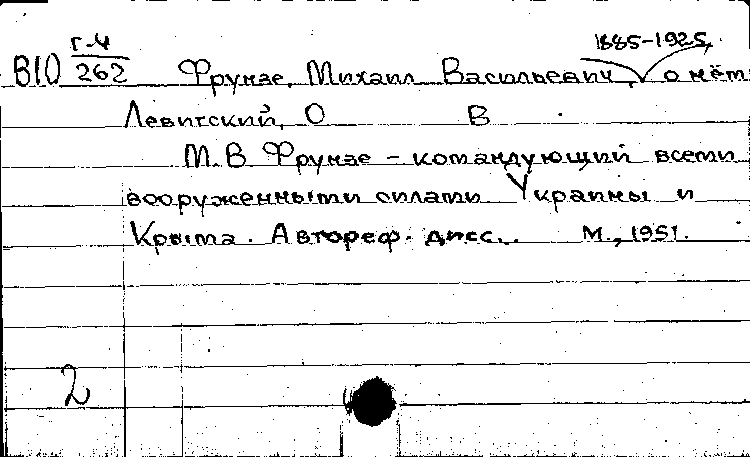 1885-1925,
В10 Г-4/262 Фрунзе, Михаил Васильевич, о нём
Левитский, О В
М.В Фрунзе - командующий всеми
вооруженными силами Украины и
Крыма. Автореф. дисс.. М., 1951.
2